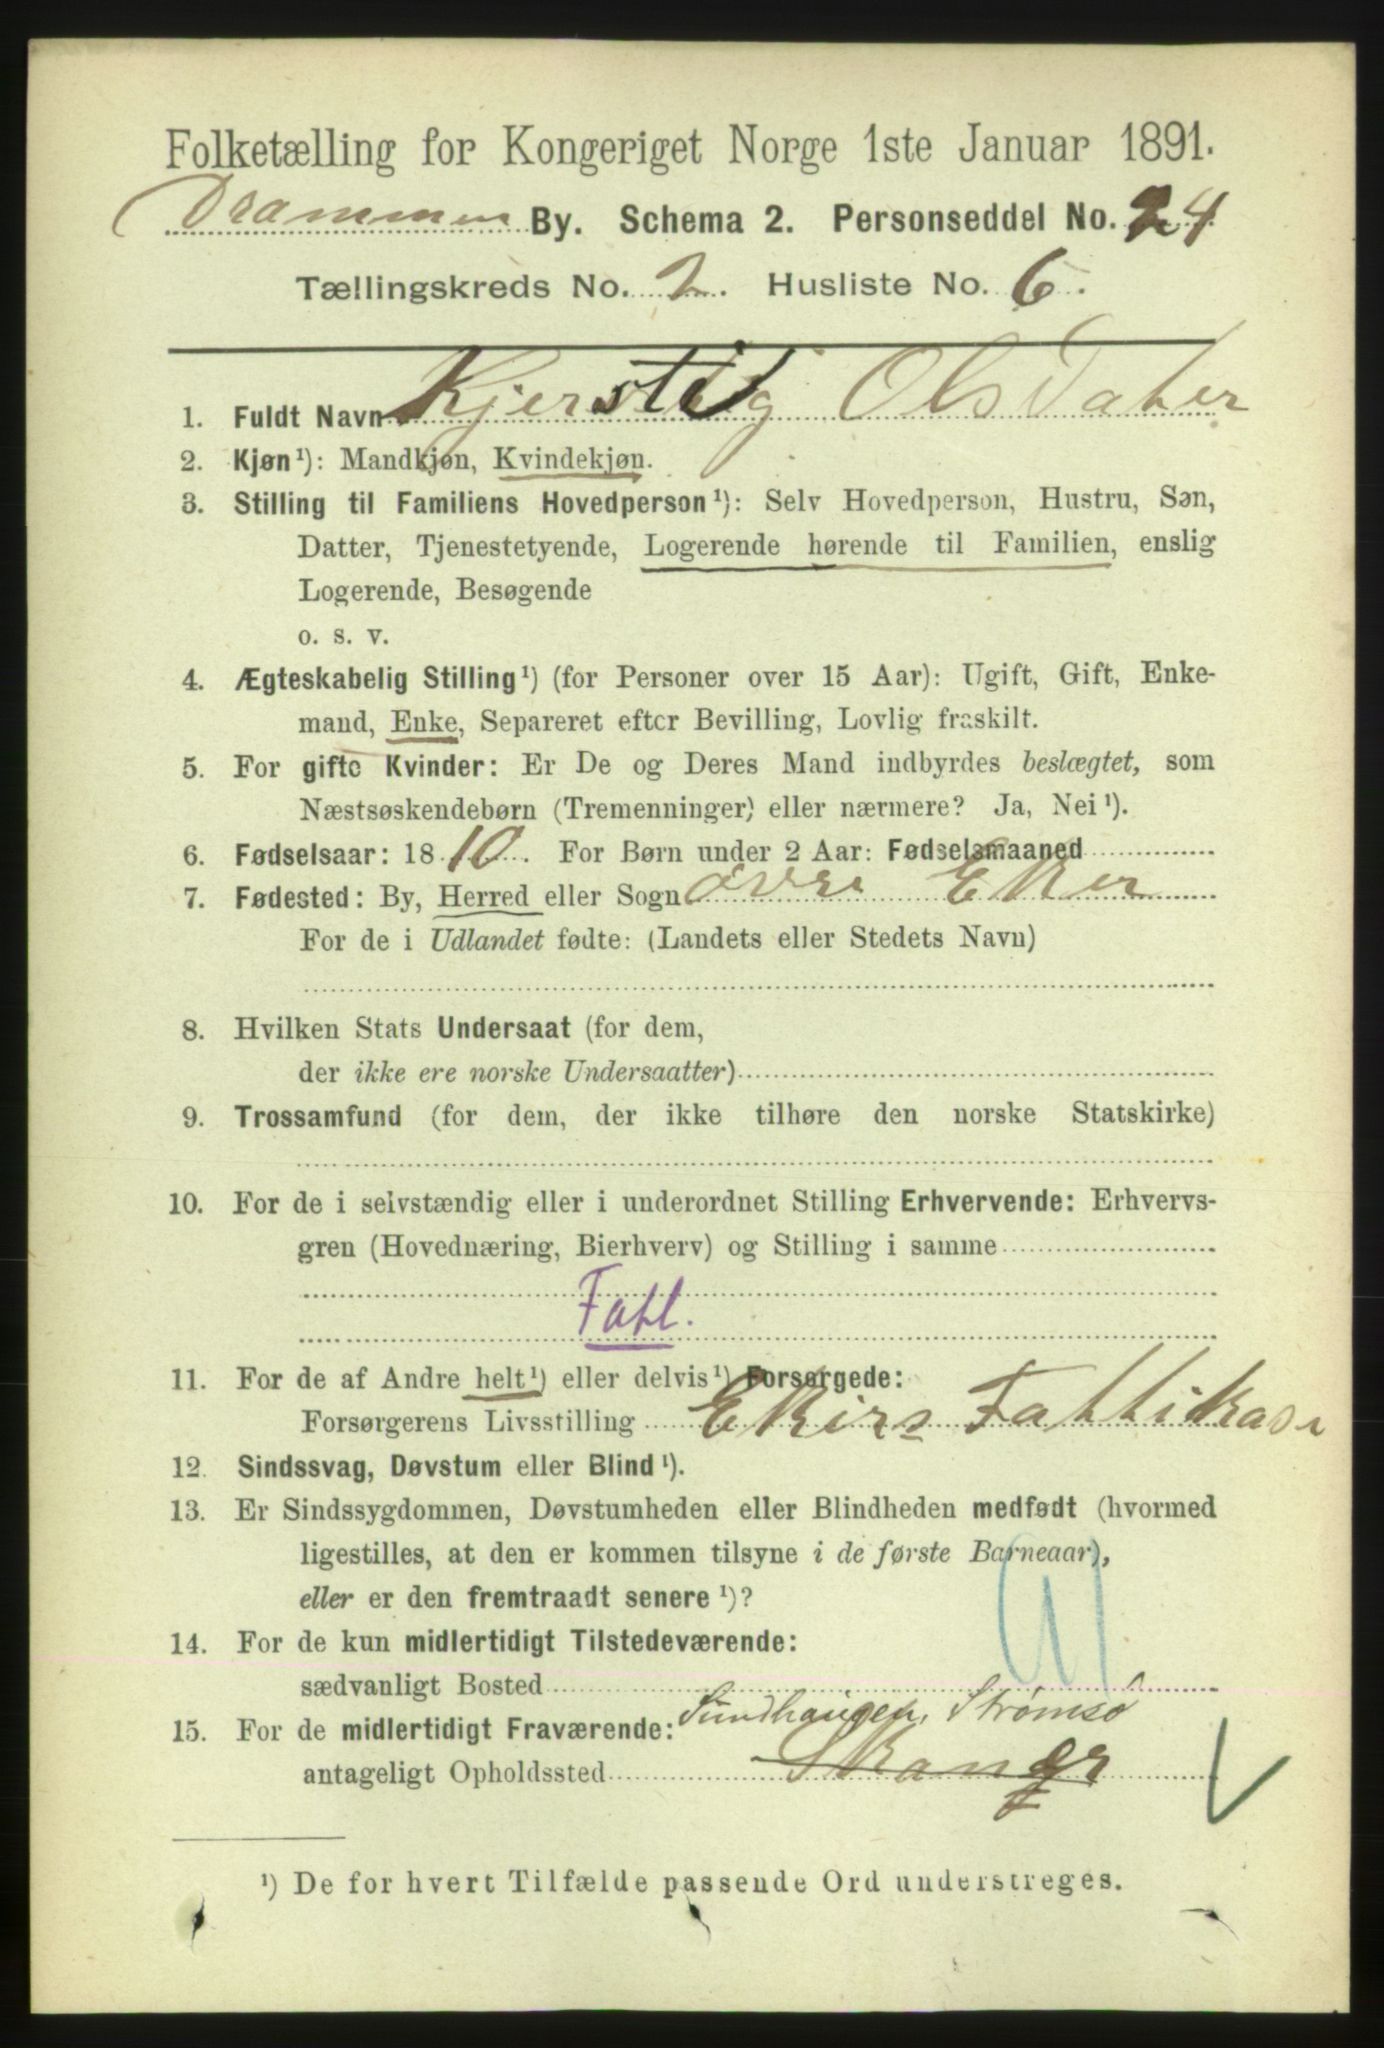 Folketælling for Kongeriget Norge 1ste Januar 1891.
Drammen By. Schema 2. Personseddel No. 24
Tællingskreds No. 2. Husliste No. 6.
1. Fuldt Navn Kjersti Olsdater
2. Kjøn¹): Mandkjøn, Kvindekjøn.
3. Stilling til Familiens Hovedperson¹): Selv Hovedperson, Hustru, Søn,
Datter, Tjenestetyende, Logerende hørende til Familien, enslig
Logerende, Besøgende
o. s. v.
4. Ægteskabelig Stilling¹) (for Personer over 15 Aar): Ugift, Gift, Enke-
mand, Enke, Separeret efter Bevilling, Lovlig fraskilt.
5. For gifte Kvinder: Er De og Deres Mand indbyrdes beslægtet, som
Næstsøskendebørn (Tremenninger) eller nærmere? Ja, Nei¹).
6. Fødselsaar: 1810. For Børn under 2 Aar: Fødselsmaaned
7. Fødested: By, Herred eller Sogn øvre Eker
For de i Udlandet fødte: (Landets eller Stedets Navn)
8. Hvilken Stats Undersaat (for dem,
der ikke ere norske Undersaatter)
9. Trossamfund (for dem, der ikke tilhøre den norske Statskirke)
10. For de i selvstændig eller i underordnet Stilling Erhvervende: Erhvervs-
gren (Hovednæring, Bierhverv) og Stilling i samme
Fatt.
11. For de af Andre helt¹) eller delvis¹) Forsørgede:
Forsørgerens Livsstilling Ekers Fattikase
12. Sindssvag, Døvstum eller Blind¹).
13. Er Sindssygdommen, Døvstumheden eller Blindheden medfødt (hvormed
ligestilles, at den er kommen tilsyne i de første Barneaar),
eller er den fremtraadt senere¹)?
14. For de kun midlertidigt Tilstedeværende:
sædvanligt Bosted
15. For de midlertidigt Fraværende: Sundhaugen, Strømsø
antageligt Opholdssted
¹) De for hvert Tilfælde passende Ord understreges.